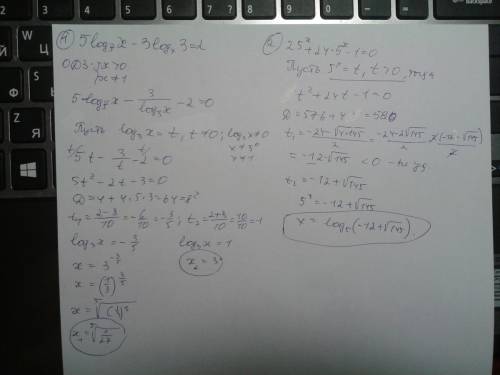 ① 5log₃x - 3logₓ3 = 2
ОДЗ: x>0
x≠1
5·log₃x - 3/log₃x - 2 = 0
Пусть log₃x = t, t≠0; log₃x≠0
x≠3⁰
x≠1
5t - 3/t - 2 = 0
5t² - 2t - 3 = 0
D = 4 + 4·5·3 = 64 = 8²
t₁ = (2-8)/10 = -6/10 = -3/5; t₂ = (2+8)/10 = 10/10 = 1
log₃x = -3/5
log₃x = 1
x = 3^(-3/5)
x₂ = 3
x = (1/3)^(3/5)
x = ⁵√((1/3)³)
x₁ = ⁵√(1/27)
② 25ˣ + 24·5ˣ - 1 = 0
Пусть 5ˣ = t, t>0, тогда
t² + 24t - 1 = 0
D = 576 + 4 = 580
t₁ = (-24 - √(4·145))/2 = (-24 - 2√145)/2 = 2(-12 - √145)/2
= -12 - √145 < 0 - не уд.
t₂ = -12 + √145
5ˣ = -12 + √145
x = log₅(-12 + √145)